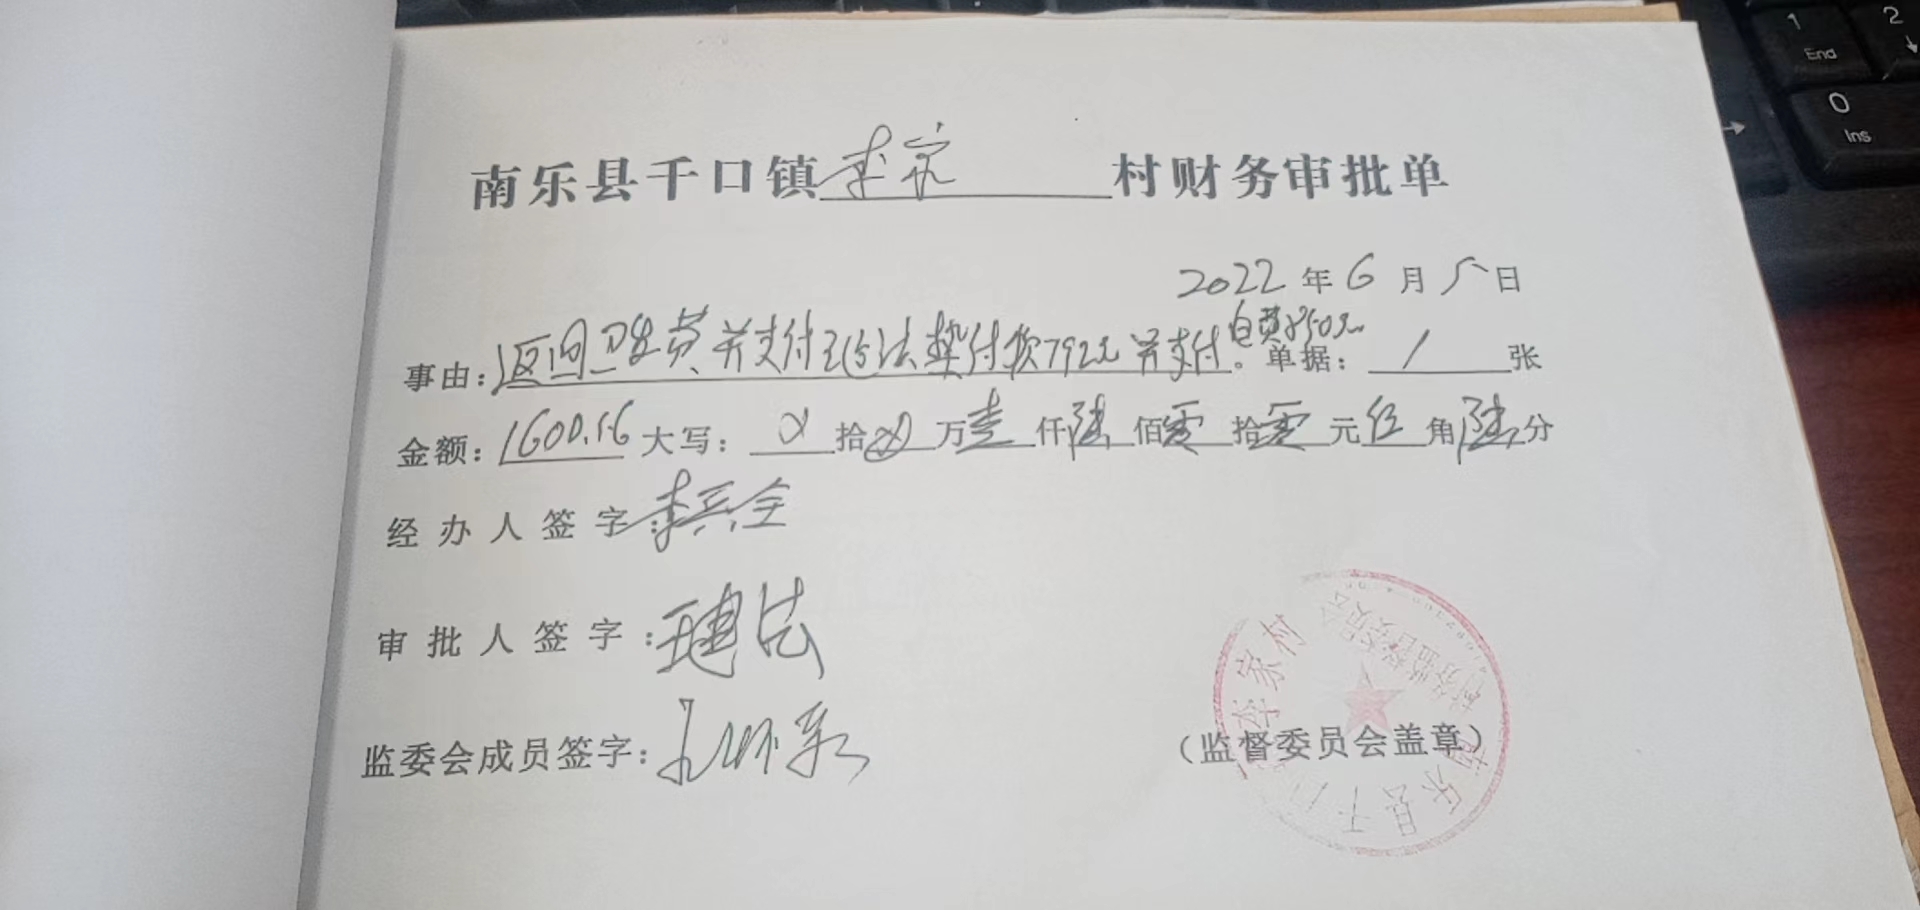 南乐县千口镇李家村财务审批单
2022年6月5日
事由:返回卫生费并支付 法垫付款792元并支付电费850元。单据:1张
金额:1600.56大写: 拾 万壹仟陆佰零拾零元伍角陆分
经办人签字:李兵全
审批人签字: 法
监委会成员签字:
(监督委员会盖章)
南乐县千口镇李家村
村务监督委员会
1
End
2
0
Ins